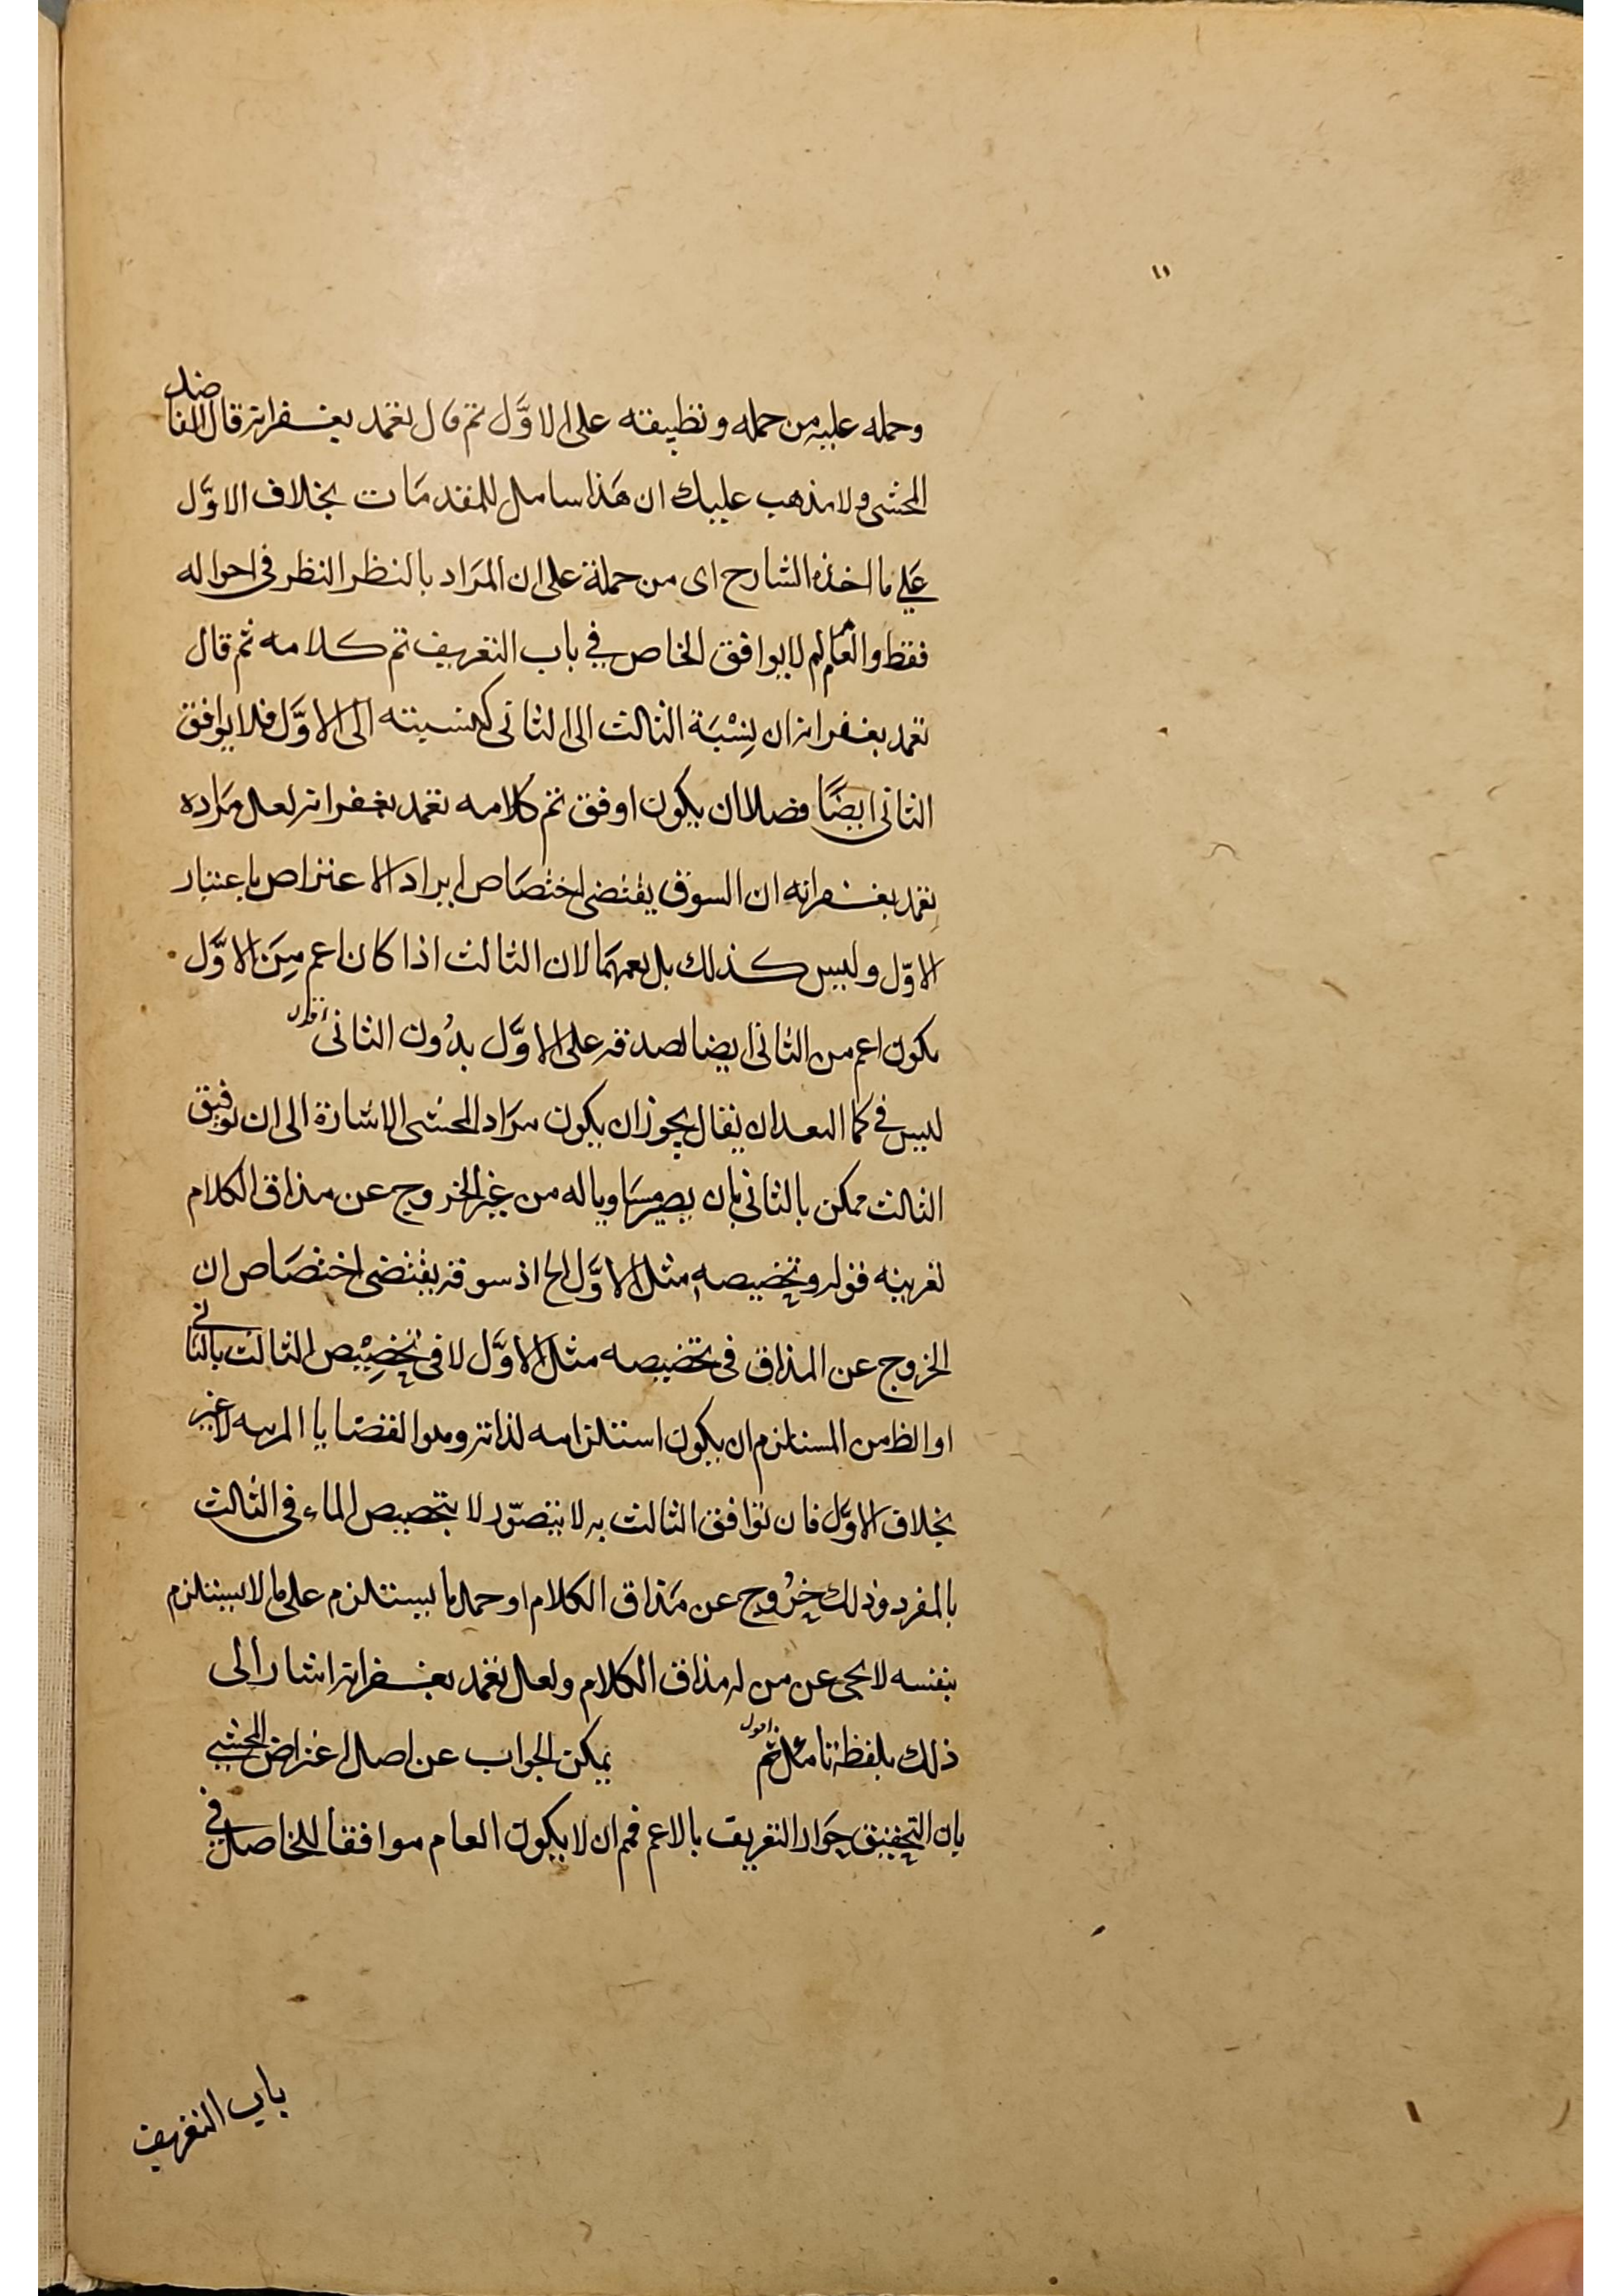 وحمله عليه من حمله وتطبيقه على الاوَّل تم قال تغمد بغفرانه قال الفاضل
المحشى ولا يذهب عليك ان هَذا شامل للمقدمَات بخلاف الاوَّل
عَلى ما اخذه الشارح اى من حملة على ان المرَاد بالنظر النظر فى احواله
فقط والعام لم لا يوافق الخاص في باب التعريف تم كلامه ثم قال
تغمد بغفرانه ان نِسْبَة الثالث الى الثانى كنسبته الى الاوَّل فلا يوافق
الثانى ايضًا فضلا ان يكون اوفق تم كلامه تغمد بغفرانه لعل مرَاده
تغمد بغفرانه ان السوق يقتضى اختصَاص ايراد الاعتراض باعتبار
الاوّل وليس كذلك بل يعمهمَا لان الثالث اذا كان اعم مِنَ الاوَّل
يكون اعم من الثانى ايضا لصدقه على الاوَّل بدُون الثانى اقول
ليس فى كما البعد ان يقال يجوز ان يكون مرَاد المحشى الاشارة الى ان توفيق
الثالث ممكن بالثانى بان يصير مسَاويا له من غير الخروج عن مذاق الكلام
لقرينه قوله وتخصيصه مثل الاوَّل الخ اذ سوقه يقتضى اختصَاص ان
الخروج عن المذاق فى تخصيصه مثل الاوَّل لا فى تخصِيْص الثالث بالثانى
او الظ من المستلزم ان يكون استلزامه لذاته وهو القضايا المرتبه لا غير
بخلاف الاوَّل فان توافق الثالث به لا يتصوّر الا بتخصيص الماء فى الثالث
بالمفرد وذلك خرُوج عن مَذاق الكلام او حمل ما يستلزم على ما لا يستلزم
بنفسه لا يخى عن من له مذاق الكلام ولعل تغمد بغفرانه اشار الى
ذلك بلفظة تامل ثم اقول يمكن الجواب عن اصل اعتراض المحشى
بان التحقيق جَواز التعريف بالاعم فمم ان لا يكون العام موافقا للخاص فى
باب التعريف